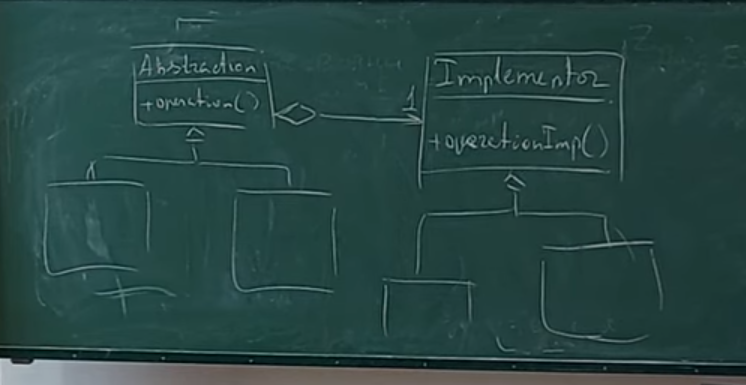 Abstraction
+operation()
1
Implementor
+operationImp()